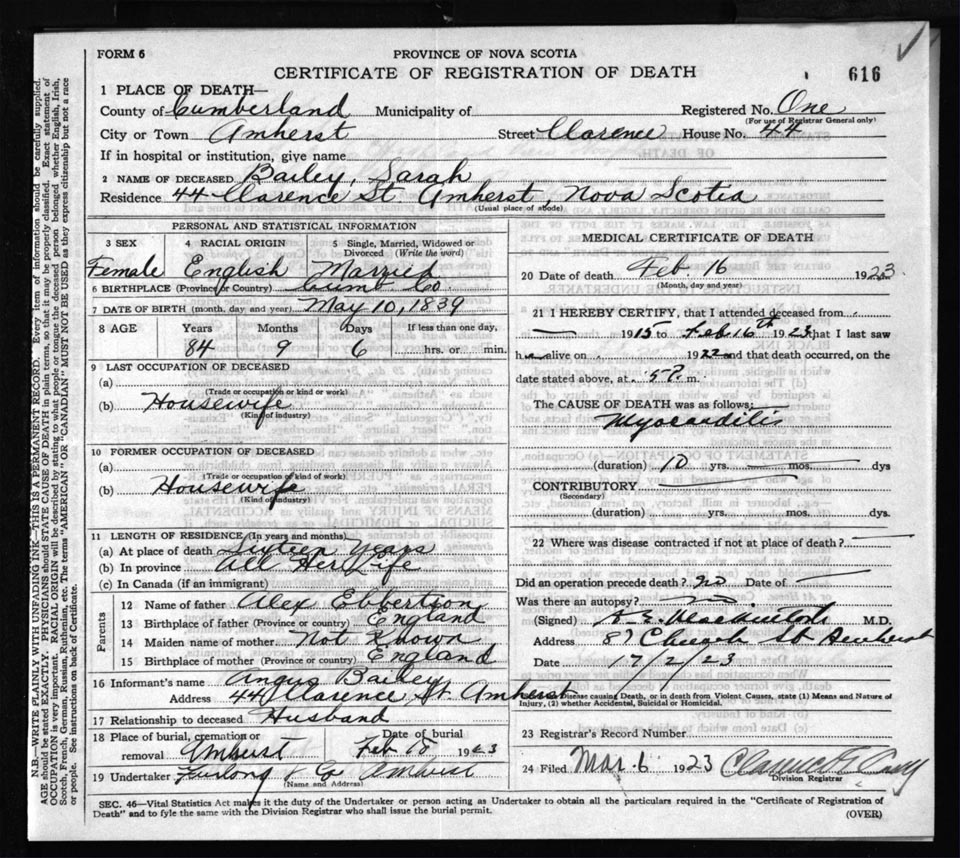 FORM 6
PROVINCE OF NOVA SCOTIA
CERTIFICATE OF REGISTRATION OF DEATH
616
1 PLACE OF DEATH—
County of Cumberland Municipality of Registered No. One
(For use of Registrar General only)
City or Town Amherst Street Clarence House No. 44
If in hospital or institution, give name
2 NAME OF DECEASED Bailey, Sarah
Residence 44 Clarence St. Amherst, Nova Scotia
(Usual place of abode)
PERSONAL AND STATISTICAL INFORMATION
3 SEX 4 RACIAL ORIGIN 5 Single, Married, Widowed or Divorced (Write the word)
Female English Married
6 BIRTHPLACE (Province or Country) Cumb Co.
7 DATE OF BIRTH (month, day and year) May 10, 1839
8 AGE Years Months Days If less than one day,
84 9 6 hrs. or min.
9 LAST OCCUPATION OF DECEASED
(a)
(Trade or occupation or kind of work)
(b) Housewife
(Kind of industry)
10 FORMER OCCUPATION OF DECEASED
(a)
(Trade or occupation or kind of work)
(b) Housewife
(Kind of industry)
11 LENGTH OF RESIDENCE (In years and months)
(a) At place of death Sixteen Years
(b) In province All Her Life
(c) In Canada (if an immigrant)
Parents
12 Name of father Alex Ebbertson
13 Birthplace of father (Province or country) England
14 Maiden name of mother Not Known
15 Birthplace of mother (Province or country) England
16 Informant's name Angus Bailey
Address 44 Clarence St. Amherst
17 Relationship to deceased Husband
18 Place of burial, cremation or removal Amherst Date of burial Feb 18 1923
19 Undertaker Furlong & Co Amherst
(Name and Address)
MEDICAL CERTIFICATE OF DEATH
20 Date of death Feb. 16 1923
(Month, day and year)
21 I HEREBY CERTIFY, that I attended deceased from
— 1915 to Feb 16th 1923 that I last saw
h alive on 1922 and that death occurred, on the
date stated above, at 5 P. m.
The CAUSE OF DEATH was as follows:
Myocarditis
(duration) 10 yrs. mos. dys
CONTRIBUTORY
(Secondary)
(duration) yrs. mos. dys.
22 Where was disease contracted if not at place of death?
Did an operation precede death? no Date of
Was there an autopsy? no
(Signed) M.D.
Address 87 Church St Amherst
Date 17/2/23
Disease causing Death, or in death from Violent Causes, state (1) Means and Nature of
Injury, (2) whether Accidental, Suicidal or Homicidal.
23 Registrar's Record Number
24 Filed Mar. 6 1923
Division Registrar
SEC. 46—Vital Statistics Act makes it the duty of the Undertaker or person acting as Undertaker to obtain all the particulars required in the "Certificate of Registration of
Death" and to fyle the same with the Division Registrar who shall issue the burial permit. (OVER)
N.B.—WRITE PLAINLY WITH UNFADING INK—THIS IS A PERMANENT RECORD. Every item of information should be carefully supplied.
AGE should be stated EXACTLY. PHYSICIANS should STATE CAUSE OF DEATH in plain terms, so that it may be properly classified. Exact statement of
OCCUPATION is very important. RACIAL ORIGIN will be described by stating to what people or tongue the deceased person belonged whether English, Irish,
Scotch, French, German, Russian, Ruthenian, etc. The terms "AMERICAN" OR "CANADIAN" MUST NOT BE USED as they express citizenship but not a race
or people. See instructions on back of Certificate.